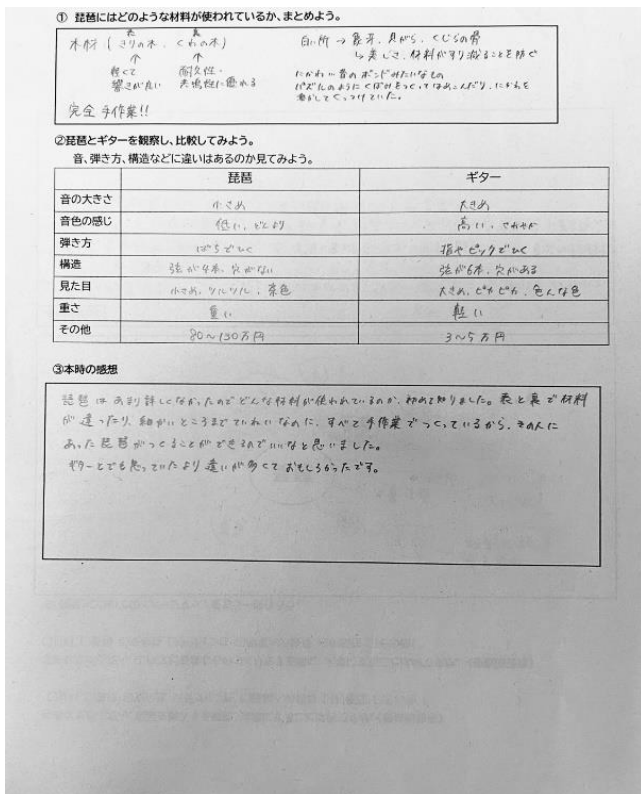 ① 琵琶にはどのような材料が使われているか、まとめよう。
表 裏
木材（きりの木、くわの木）
↑ ↑
軽くて 耐久性・
響きが良い 共鳴性に優れる
完全 手作業!!
白い所 → 象牙、貝がら、くじらの骨
↳ 美しさ、材料がすり減ることを防ぐ
にかわ… 昔のボンドみたいなもの
パズルのようにくぼみをつくってはめこんだり、にかわを
溶かしてくっつけていた。
②琵琶とギターを観察し、比較してみよう。
音、弾き方、構造などに違いはあるのか見てみよう。
琵琶 ギター
音の大きさ 小さめ 大きめ
音色の感じ 低い、どんより 高い、さわやか
弾き方 ばちでひく 指やピックでひく
構造 弦が4本、穴がない 弦が6本、穴がある
見た目 小さめ、ツルツル、茶色 大きめ、ピカピカ、色んな色
重さ 重い 軽い
その他 80〜150万円 3〜5万円
③本時の感想
琵琶はあまり詳しくなかったのでどんな材料が使われているのか、初めて知りました。表と裏で材料
が違ったり、細かいところまでていねいなのに、すべて手作業でつくっているから、その人に
あった琵琶がつくることができるのでいいなと思いました。
ギターとでも思っていたより違いが多くておもしろかったです。